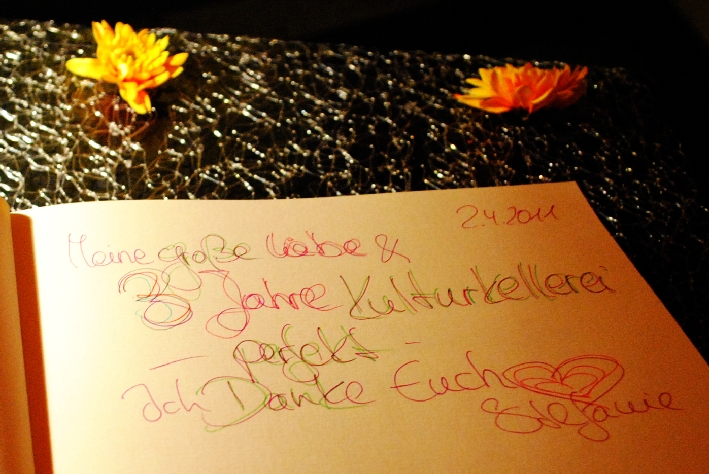 2.4.2011
Meine große Liebe &
3 Jahre Kulturkellerei
– perfekt –
Ich Danke Euch
Stefanie